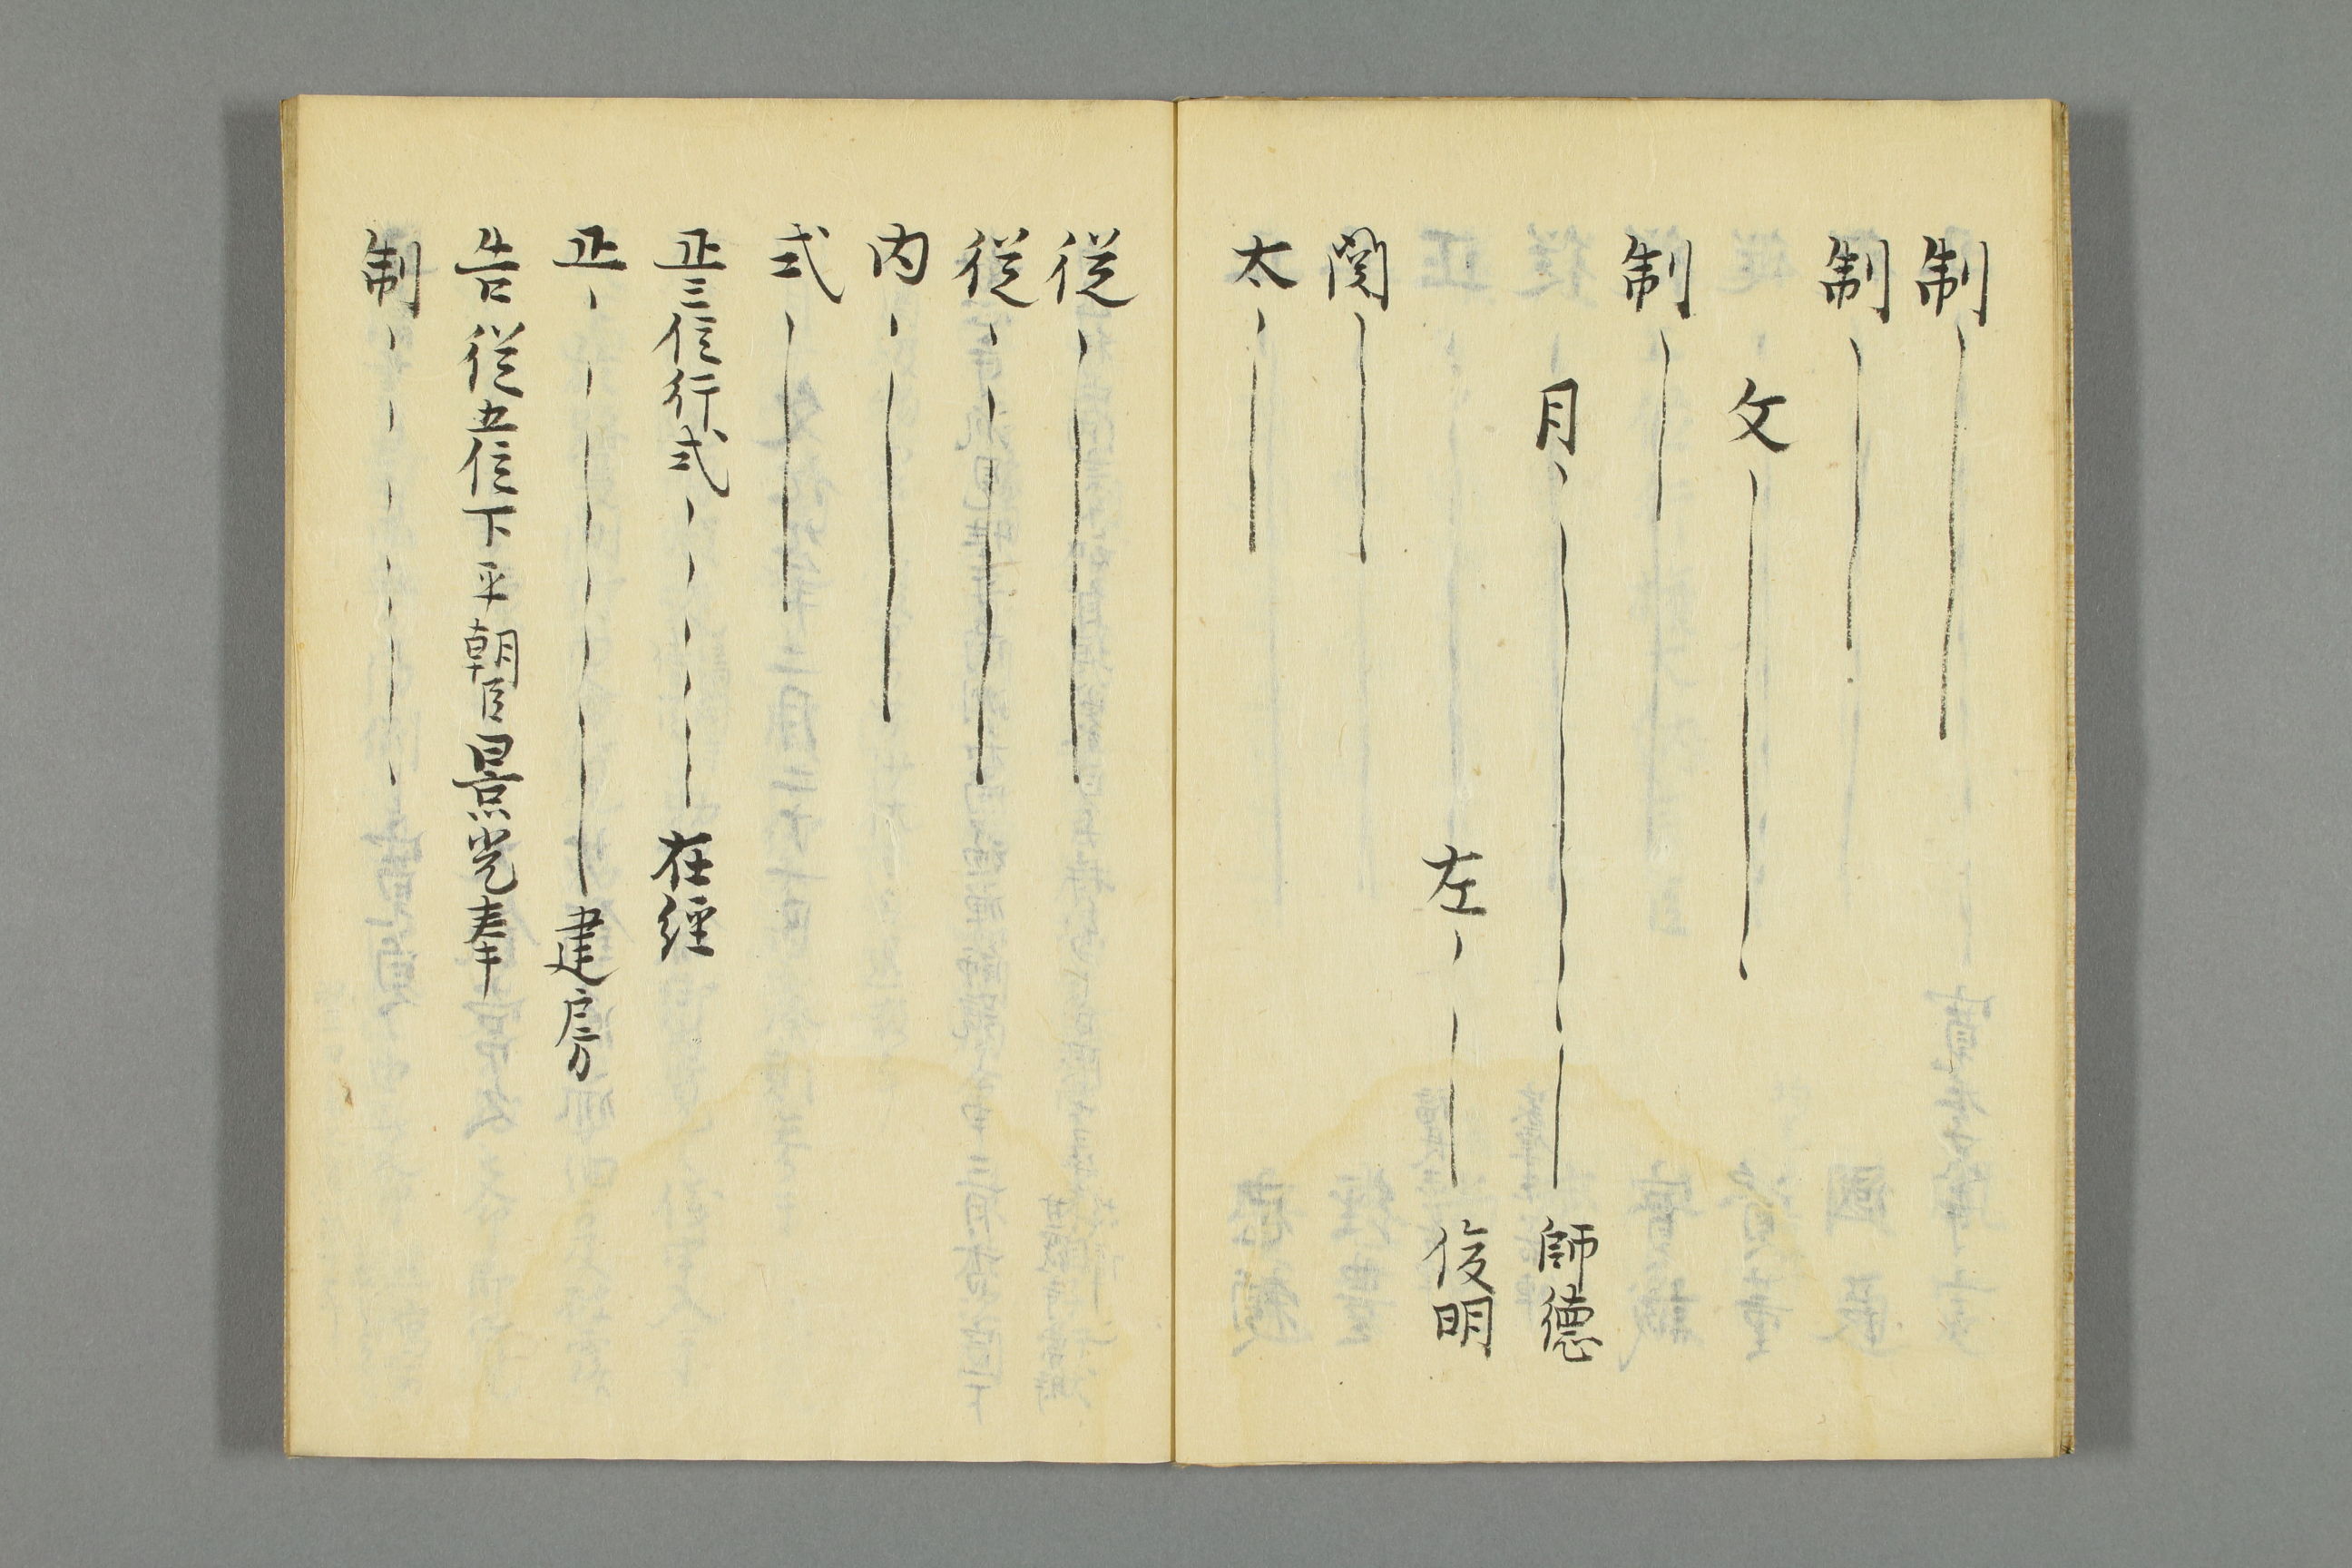 制｜
制｜
文｜
制｜
月、｜｜｜ 師徳
左、｜｜ 俊明
関｜
太、｜
従、｜
従、｜｜
内、｜
式｜
正三位行式、、、、｜｜ 在経
正、、｜｜、、｜ 建房
告 従五位下平朝臣景光奉
制、、、、、｜、